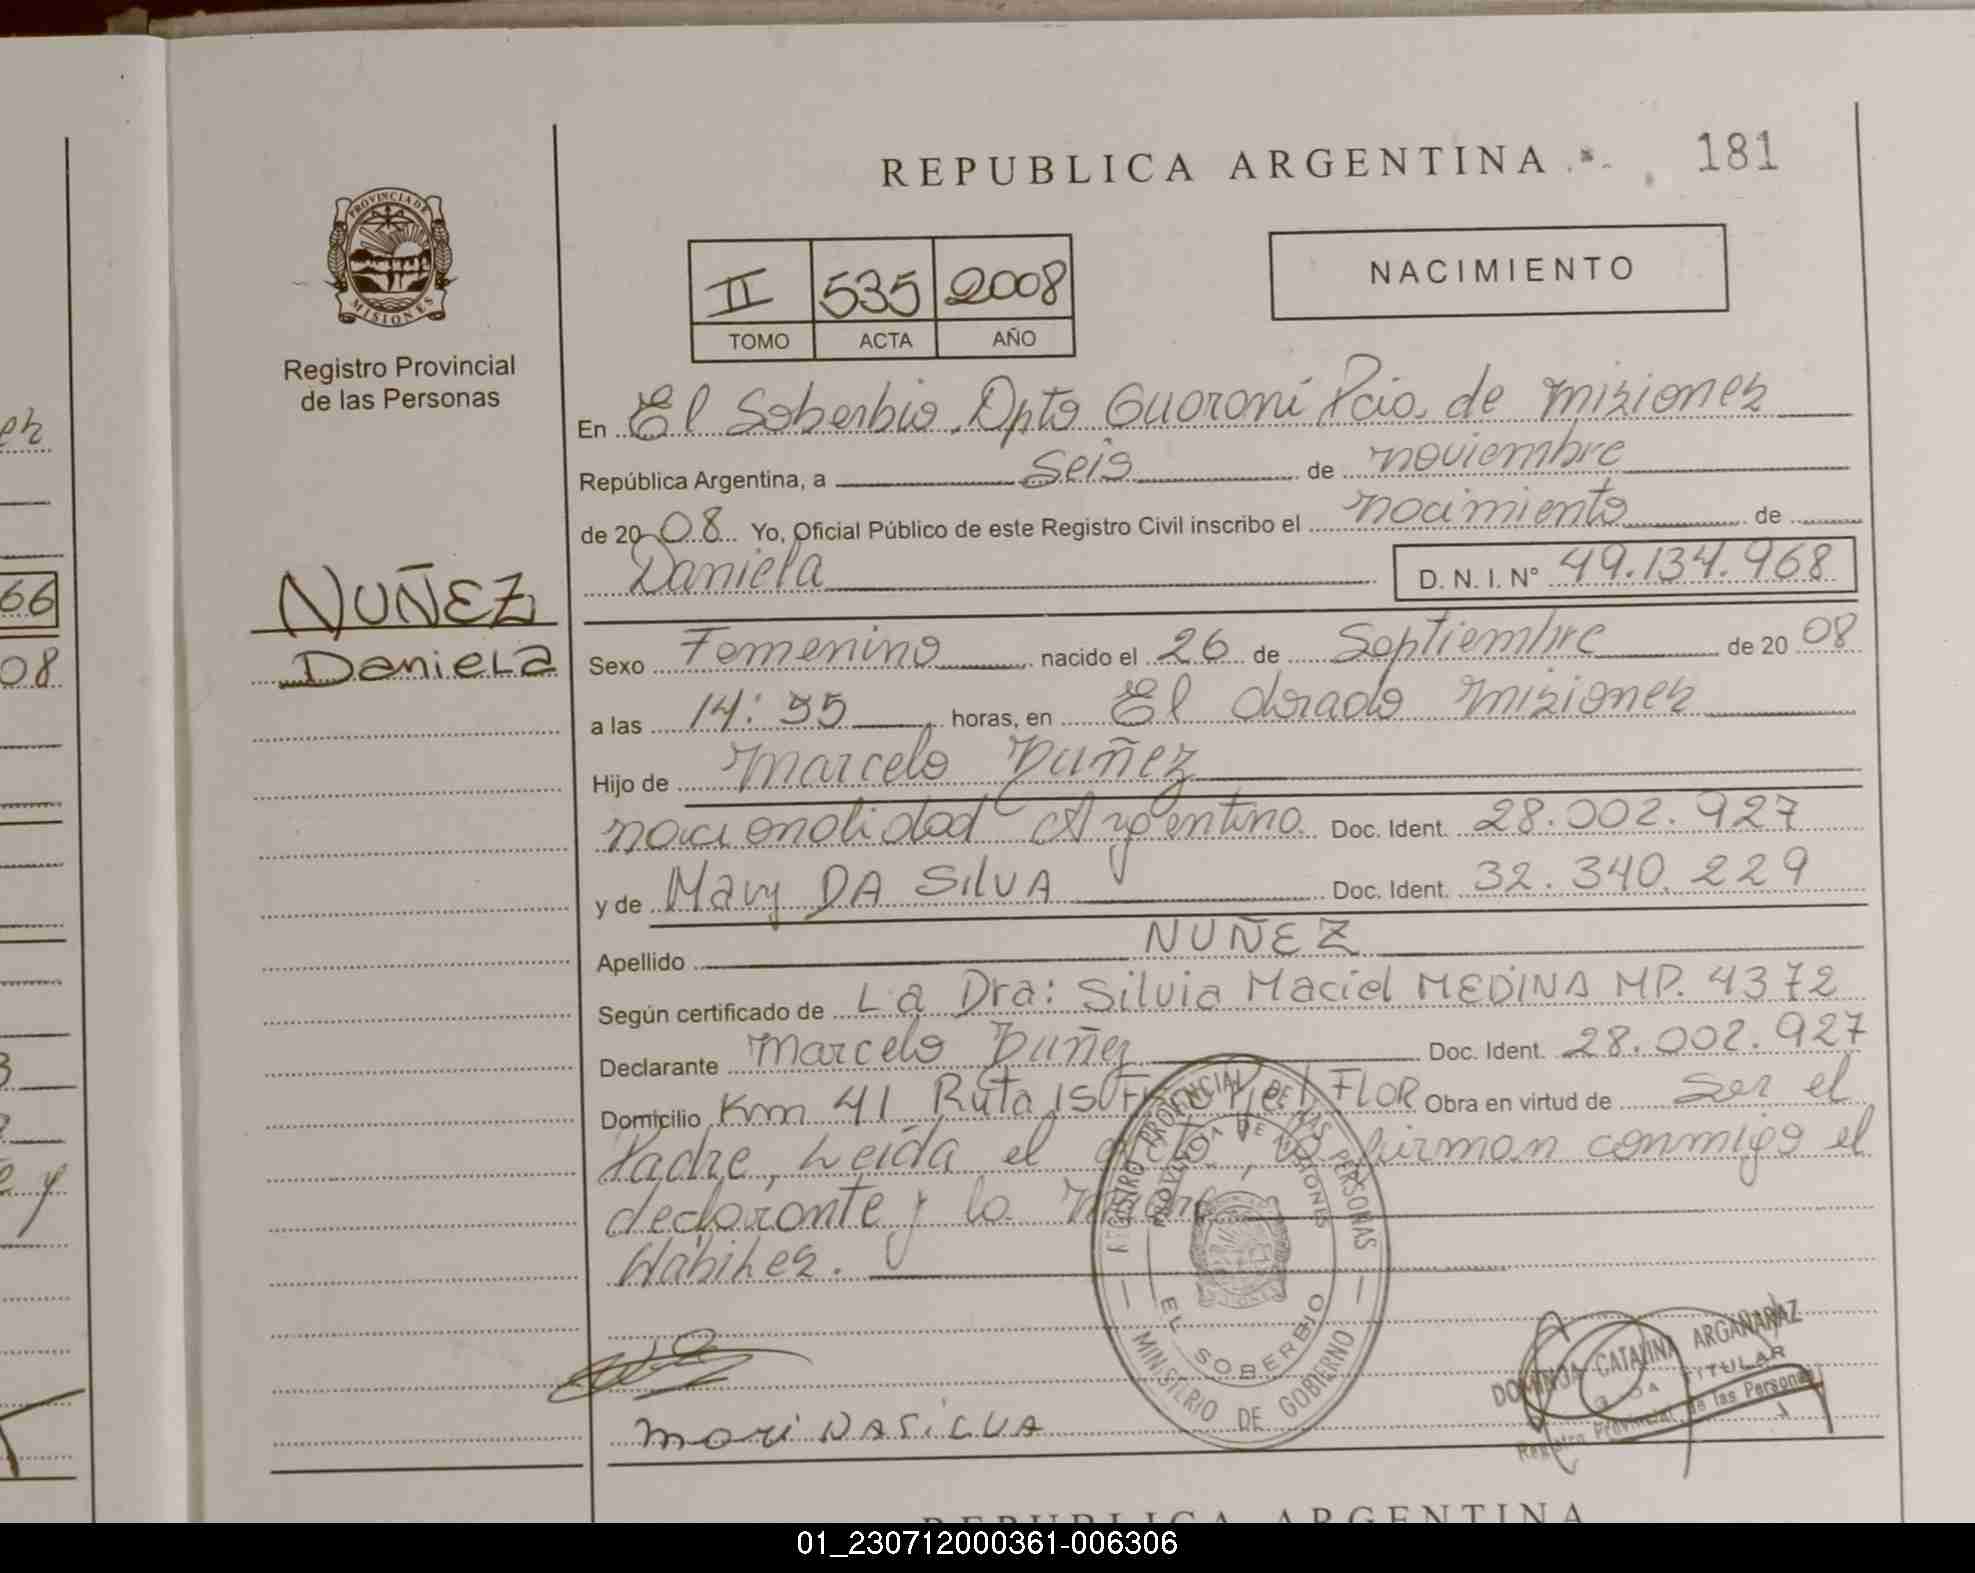 REPUBLICA ARGENTINA
181
PROVINCIA DE
MISIONES
Registro Provincial
de las Personas
NACIMIENTO
II 535 2008
TOMO ACTA AÑO
En El Soberbio, Dpto Guaraní Pcia. de Misiones
República Argentina, a Seis de noviembre
de 2008 Yo, Oficial Público de este Registro Civil inscribo el nacimiento de
Daniela D. N. I. Nº 49.134.968
NUÑEZ
Daniela
Sexo Femenino nacido el 26 de Septiembre de 2008
a las 14:55 horas, en El dorado Misiones
Hijo de Marcelo Nuñez
nacionalidad Argentina Doc. Ident. 28.002.927
y de Mary DA SilVA Doc. Ident. 32.340.229
Apellido NUÑEZ
Según certificado de La Dra: Silvia Maciel MEDINA MP. 4372
Declarante Marcelo Nuñez Doc. Ident. 28.002.927
Domicilio Km 41 Ruta FLOR Obra en virtud de ser el
Padre, Leída el acta, la firman conmigo el
declarante y la madre
Hábiles.
REGISTRO PROVINCIAL DE LAS PERSONAS
PROVINCIA DE MISIONES
EL SOBERBIO
MINISTERIO DE GOBIERNO
mari DASiLVA
CATALINA ARGAÑARAZ
TITULAR
Registro Provincial de las Personas
66
08
REPUBLICA ARGENTINA
01_230712000361-006306